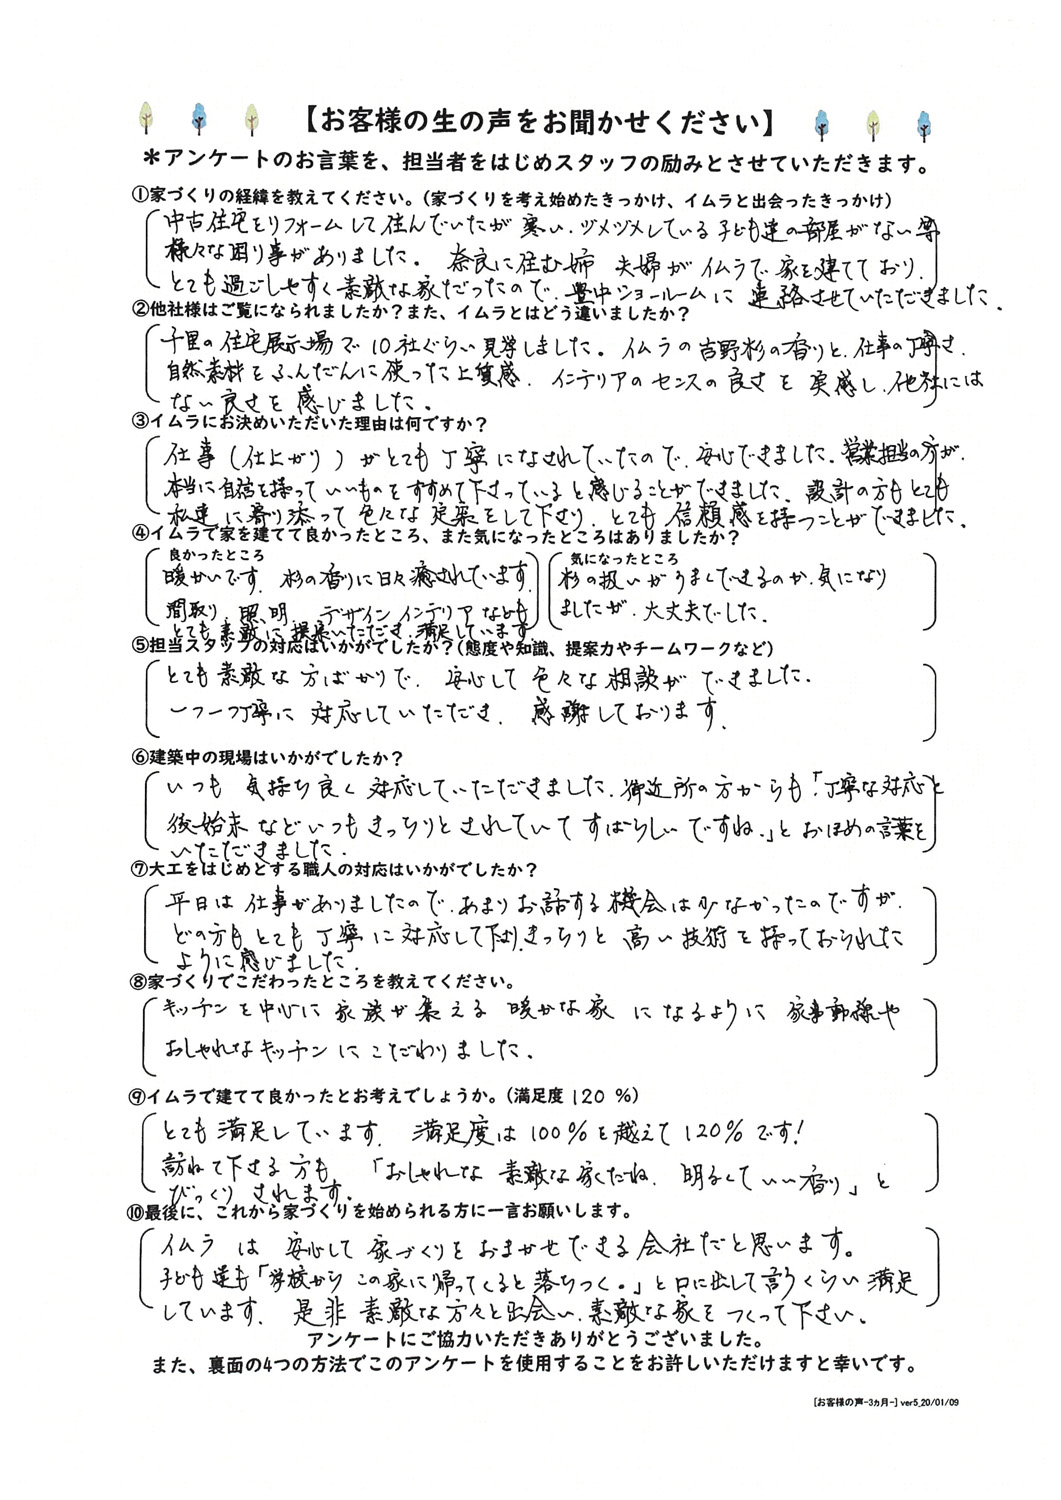 【お客様の生の声をお聞かせください】
＊アンケートのお言葉を、担当者をはじめスタッフの励みとさせていただきます。
①家づくりの経緯を教えてください。(家づくりを考え始めたきっかけ、イムラと出会ったきっかけ)
中古住宅をリフォームして住んでいたが 寒い、ヅメヅメしている 子ども達の部屋がない 等
様々な困り事がありました。 奈良に住む姉 夫婦が イムラで 家を建てており、
とても過ごしやすく素敵な家だったので、豊中ショールームに 連絡させていただきました。
②他社様はご覧になられましたか？また、イムラとはどう違いましたか？
千里の住宅展示場で10社ぐらい見学しました。イムラの吉野杉の香りと、仕事の丁寧さ、
自然素材をふんだんに使った上質感、インテリアのセンスの良さを 実感し、他社には
ない良さを 感じました。
③イムラにお決めいただいた理由は何ですか？
仕事(仕上がり)がとても丁寧になされていたので、安心できました。営業担当の方が、
本当に自信を持っていいものをすすめて下さっていると感じることができました。設計の方もとても
私達に寄り添って色々な提案をして下さり、とても信頼感を持つことができました。
④イムラで家を建てて良かったところ、また気になったところはありましたか？
良かったところ
暖かいです。杉の香りに日々癒されています。
間取り、照明、デザイン インテリア なども
とても素敵に提案いただき、満足しています。
気になったところ
杉の扱いがうまくできるのか、気になり
ましたが、大丈夫でした。
⑤担当スタッフの対応はいかがでしたか？(態度や知識、提案力やチームワークなど)
とても素敵な方ばかりで、安心して色々な相談ができました。
一つ一つ丁寧に 対応していただき、感謝しております。
⑥建築中の現場はいかがでしたか？
いつも 気持ち良く対応していただきました。御近所の方からも「丁寧な対応と
後始末などいつもきっちりとされていてすばらしいですね。」とおほめの言葉を
いただきました。
⑦大工をはじめとする職人の対応はいかがでしたか？
平日は仕事がありましたので、あまりお話する機会は少なかったのですが、
どの方もとても丁寧に対応して下さり、きっちりと 高い技術を持っておられた
ように感じました。
⑧家づくりでこだわったところを教えてください。
キッチンを中心に 家族が集える 暖かな家 になるように 家事動線や
おしゃれなキッチンにこだわりました。
⑨イムラで建てて良かったとお考えでしょうか。(満足度 120 %)
とても満足しています。 満足度は100%を越えて120%です！
訪ねて下さる方も、「おしゃれな 素敵な家だね、明るくていい香り」と
びっくりされます。
⑩最後に、これから家づくりを始められる方に一言お願いします。
イムラ は 安心して家づくりをおまかせできる会社だと思います。
子ども達も「学校からこの家に帰ってくると落ちつく。」と口に出して言うくらい満足
しています。 是非 素敵な方々と出会い、素敵な家をつくって下さい。
アンケートにご協力いただきありがとうございました。
また、裏面の4つの方法でこのアンケートを使用することをお許しいただけますと幸いです。
[お客様の声-3ヵ月-] ver5_20/01/09